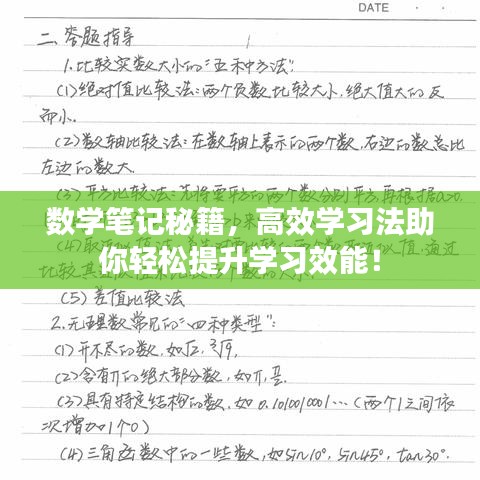 DATE
二、答题指导
1.比较实数大小的"五种方法":
(1)绝对值比较法:两个负数比较大小,绝对值大的反
而小.
(2)数轴比较法:在数轴上表示的两个数,右边的数总比
左边的数大.
(3)平方比较法:先将要比的两个数分别平方,再根据a>0,
数学笔记秘籍，高效学习法助
你轻松提升学习效能！
(5)差值比较法
2.无理数常见的"四种类型":
(1)开不尽的数,如√2,³√9,
(2)含有π的绝大部分数,如π,
(3)具有特定结构的数,如0.1010010001…(两个1之间依
次增加1个0)
(4)三角函数中的一些数,如sin10°,sin45°,tan30°.